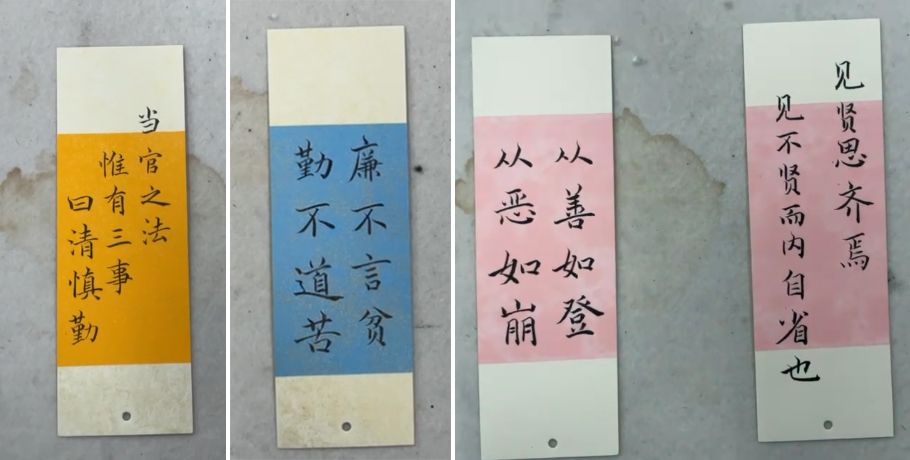 当官之法
惟有三事
曰清慎勤
廉不言贫
勤不道苦
从善如登
从恶如崩
见贤思齐焉
见不贤而内自省也